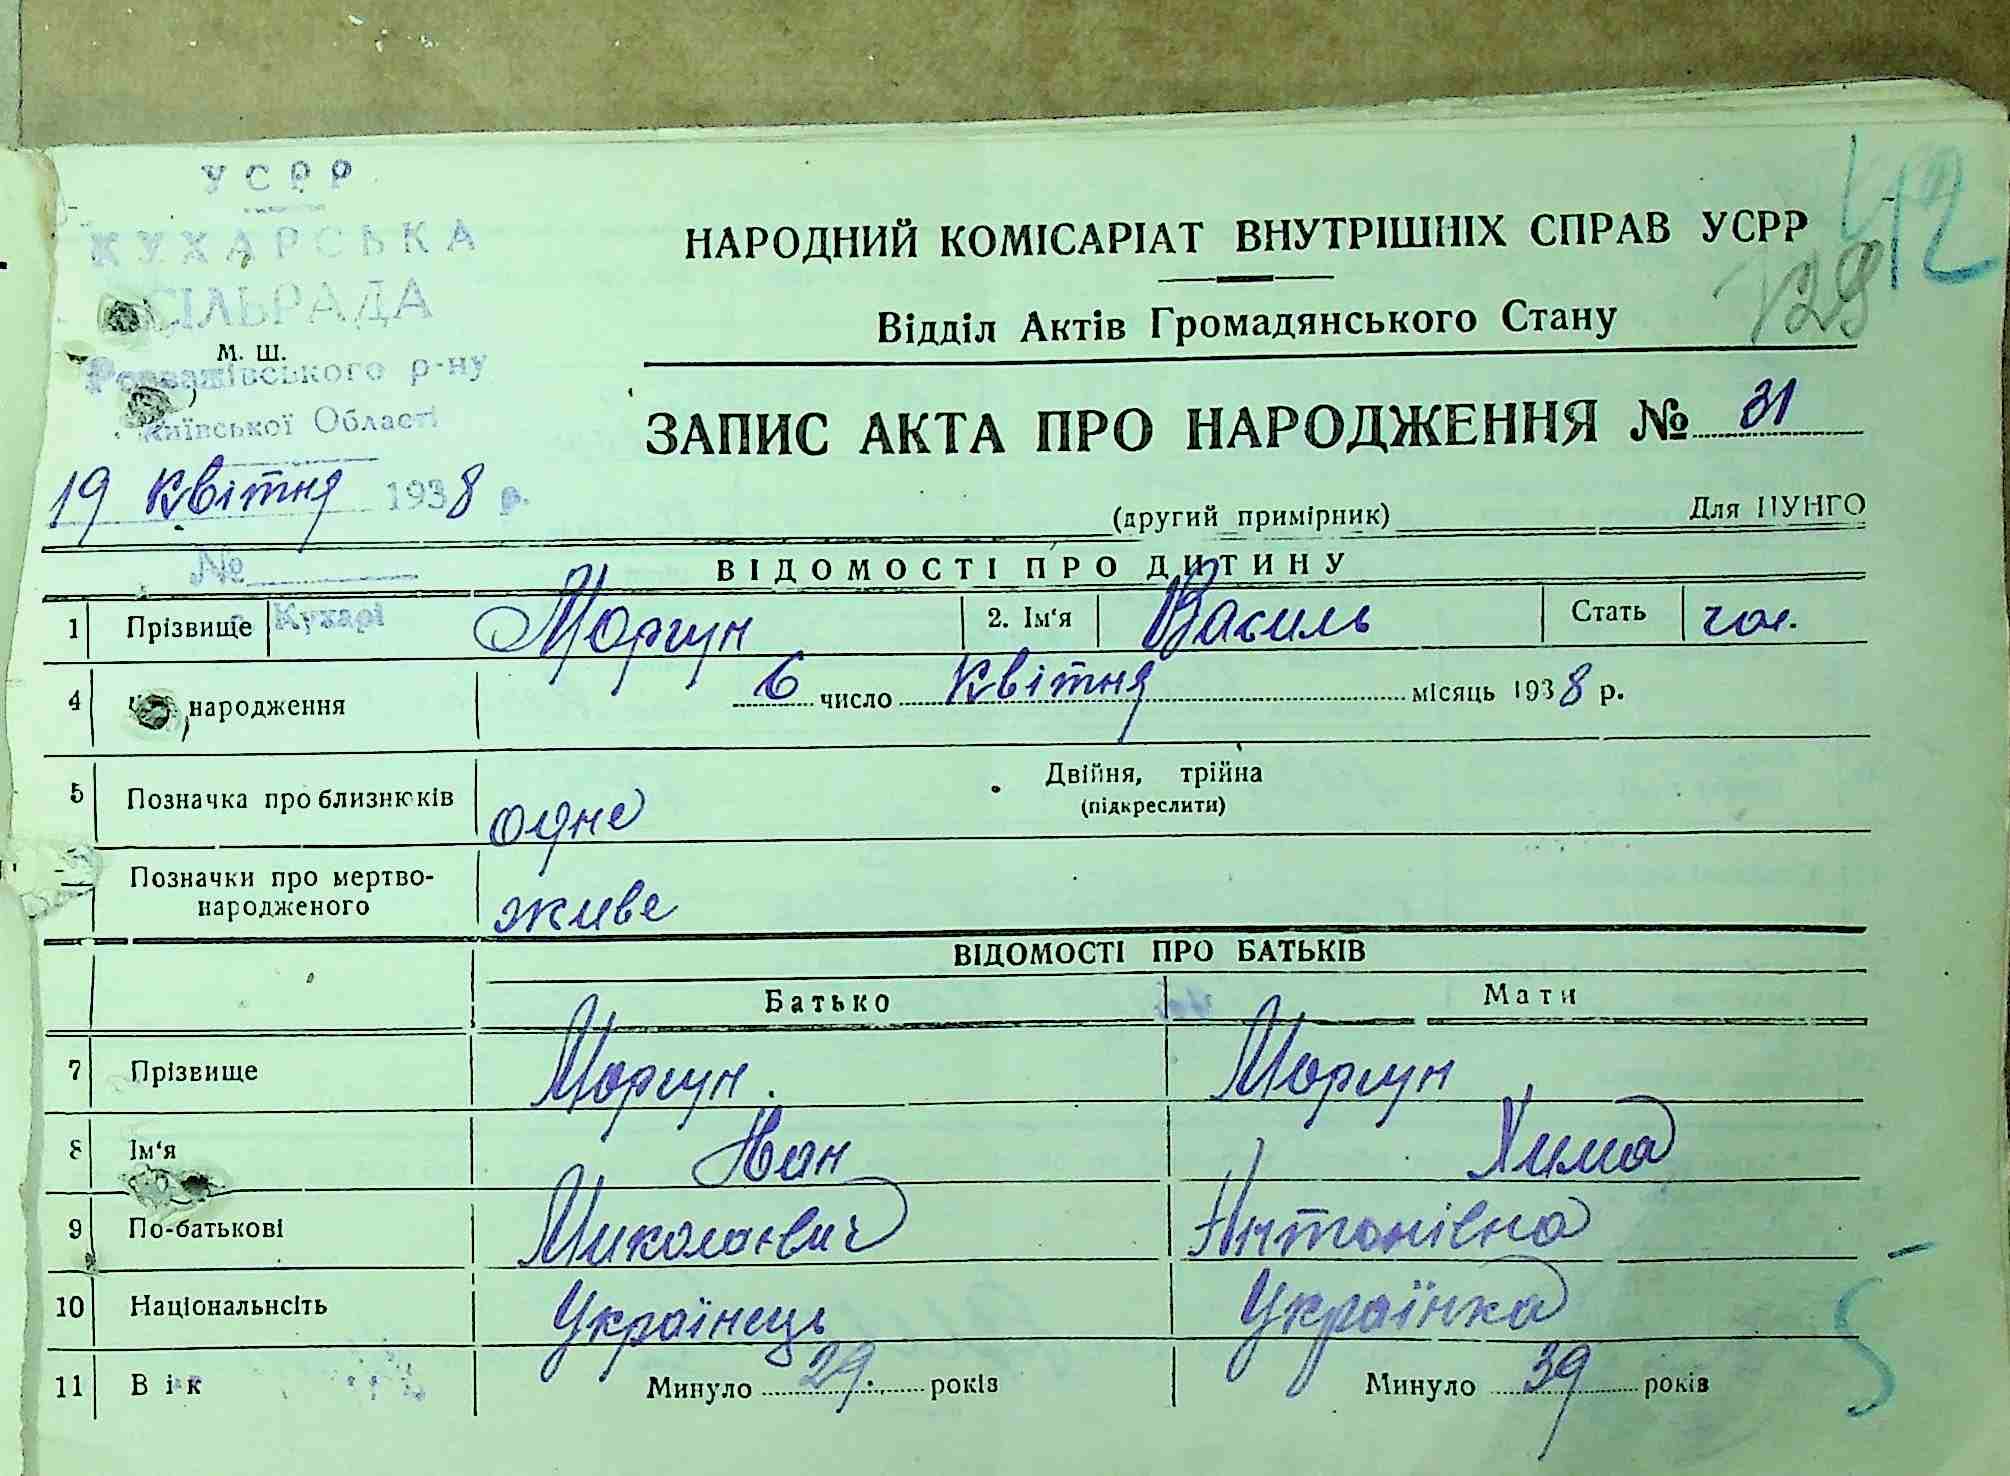 УСРР
КУХАРСЬКА
СІЛЬРАДА
М. Ш.
Розважівського р-ну
Київської Області
19 квітня 1938 р.
№
с. Кухарі
42
129
НАРОДНИЙ КОМІСАРІАТ ВНУТРІШНІХ СПРАВ УСРР
Відділ Актів Громадянського Стану
ЗАПИС АКТА ПРО НАРОДЖЕННЯ № 31
(другий примірник) Для ЦУНГО
ВІДОМОСТІ ПРО ДИТИНУ
1 Прізвище Моргун 2. Ім‘я Василь Стать чол.
4 народження 6 число квітня місяць 1938 р.
5 Позначка про близнюків одне Двійня, трійна
(підкреслити)
Позначки про мертво-
народженого живе
ВІДОМОСТІ ПРО БАТЬКІВ
Батько Мати
7 Прізвище Моргун. Моргун
8 Ім‘я Іван Хима
9 По-батькові Миколаевич Антонівна
10 Національнсіть Українець Українка
11 Вік Минуло 29. років Минуло 39 років
5